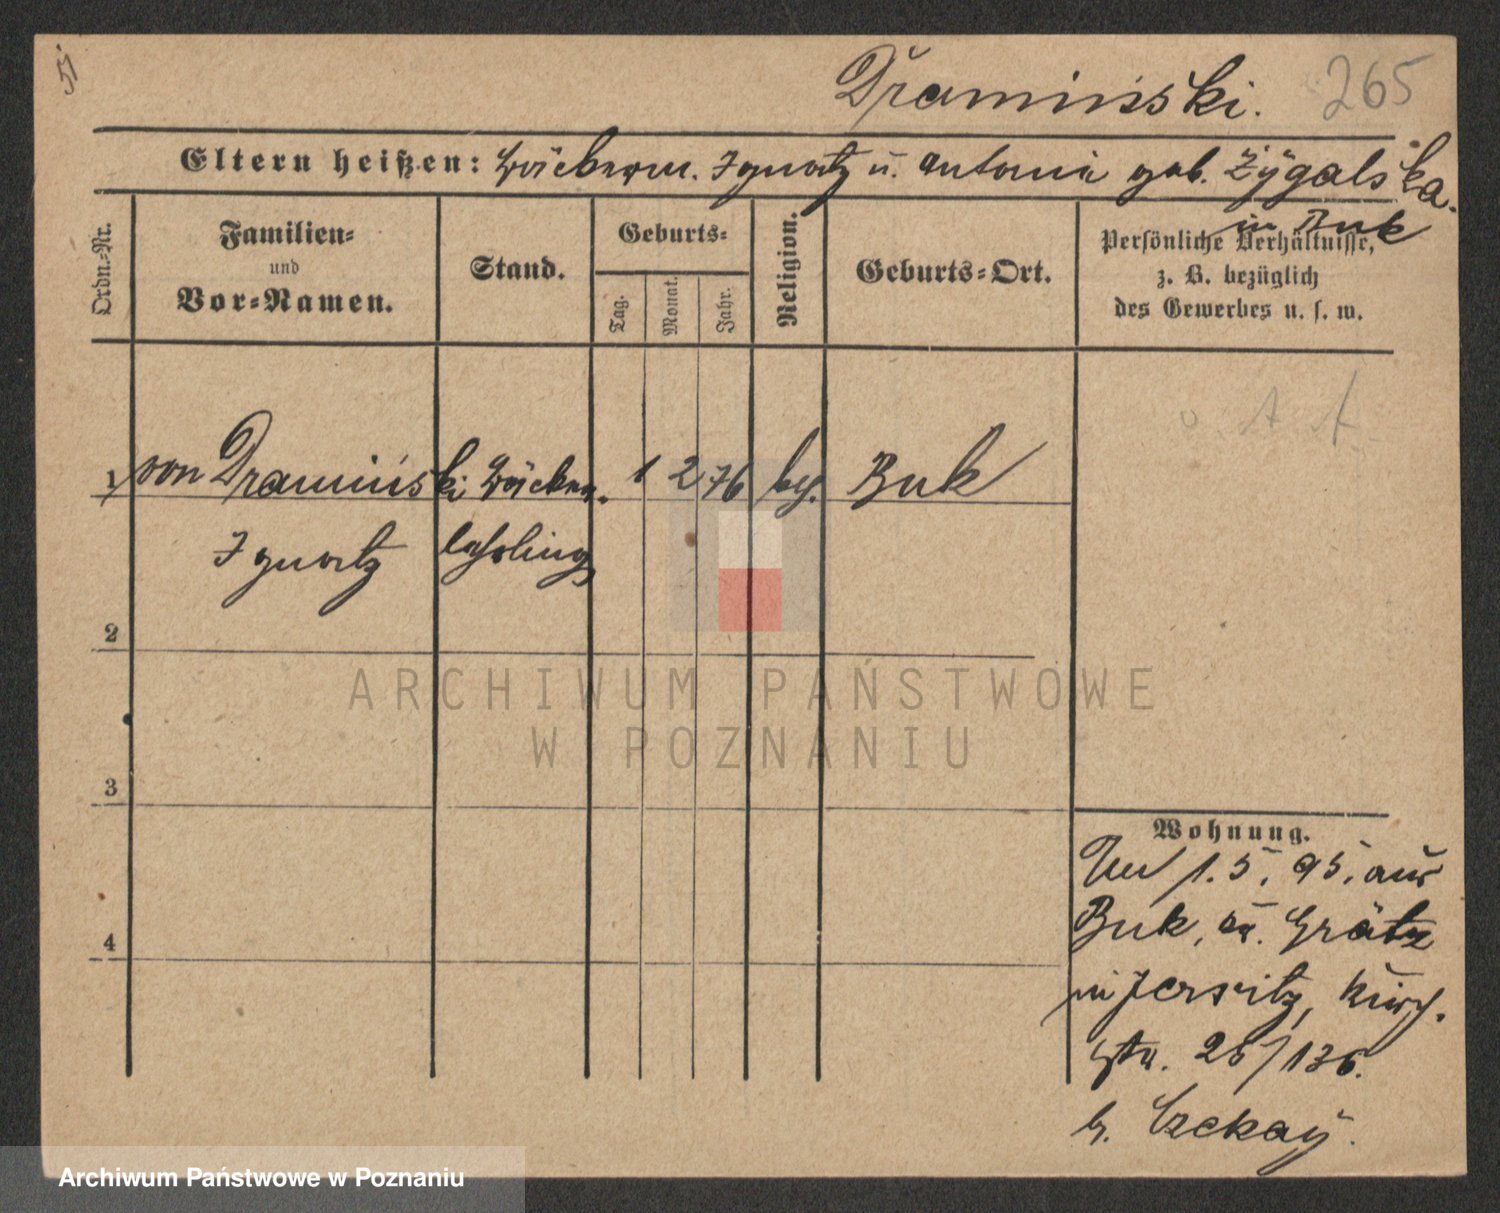 51
Dramiński. 265
Eltern heißen: Bäckerm. Ignatz u. Antonie geb. Żygalska.
in Buk
Ordn.-Nr.
Familien-
und
Vor-Namen.
Stand.
Geburts-
Tag.
Monat.
Jahr.
Religion.
Geburts-Ort.
Persönliche Verhältnisse,
z. B. bezüglich
des Gewerbes u. s. w.
1 von Dramiński Bäcker- 1 2 76 Buk
Ignatz lehrling
2
3
4
Wohnung.
1. 5. 95. aus
Buk, Kr. Grätz
in Jersitz, Kirch-
str. 26/136.
b. Czekay.
ARCHIWUM PAŃSTWOWE
W POZNANIU
Archiwum Państwowe w Poznaniu